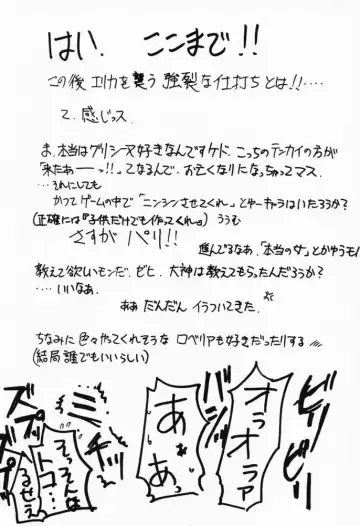 はい、ここまで!!
この後エリカを襲う強裂な仕打ちとは!!‥‥
て、感じっス
ま、本当はグリシーヌ好きなんですケド、こっちのテンカイの方が
「来たあーっ!!」てなるんで、お亡くなりになっちゃってマス
…それにしても
かつてゲームの中で「ニンシンさせてくれ」とゆーキャラはいただろうか?
(正確には『子供だけでも作ってくれ』)ううむ
さすがパリ!!
進んでるなあ、「本当の女」とかゆうモノ
教えて欲しいモンだ、ゼヒ、大神は教えてもらったんだろうか?
…いいなぁ、
ああ だんだん イラついてきた。
ちなみに色々やってくれそうな ロベリアも好きだったりする
(結局誰でもいいらしい)
ビシ
ビシ
オラ
オラァ
あぁ
あっ
そっそんな
トコ…
るせえ
ズプ
ズプ